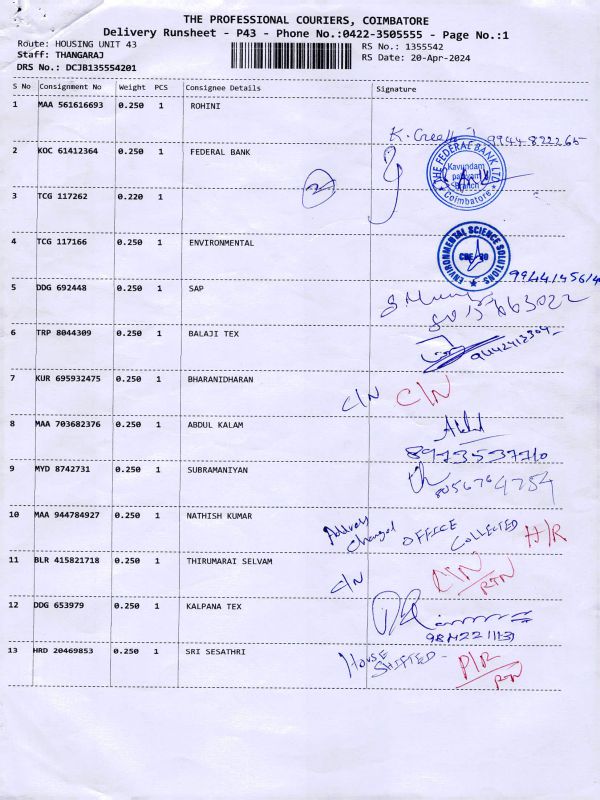 THE PROFESSIONAL COURIERS, COIMBATORE
Delivery Runsheet - P43 - Phone No.:0422-3505555 - Page No.:1
Route: HOUSING UNIT 43 RS No.: 1355542
Staff: THANGARAJ RS Date: 20-Apr-2024
DRS No.: DCJB135554201
S No Consignment No Weight PCS Consignee Details Signature
1 MAA 561616693 0.250 1 ROHINI
K. 9944 822265
2 KOC 61412364 0.250 1 FEDERAL BANK
THE FEDERAL BANK LTD
Kavundam
palayam
Branch
Coimbatore
2
3 TCG 117262 0.220 1
4 TCG 117166 0.250 1 ENVIRONMENTAL
ENVIRONMENTAL SCIENCE SOLUTIONS
5 DDG 692448 0.250 1 SAP
6 TRP 8044309 0.250 1 BALAJI TEX
9442413304
7 KUR 695932475 0.250 1 BHARANIDHARAN
C/N C/N
8 MAA 703682376 0.250 1 ABDUL KALAM
9 MYD 8742731 0.250 1 SUBRAMANIYAN
8056764754
10 MAA 944784927 0.250 1 NATHISH KUMAR
Address
Changed OFFICE COLLECTED H/R
11 BLR 415821718 0.250 1 THIRUMARAI SELVAM
C/N C/N
RTN
12 DDG 653979 0.250 1 KALPANA TEX
13 HRD 20469853 0.250 1 SRI SESATHRI
HOUSE
SHIFTED P/R
RTN